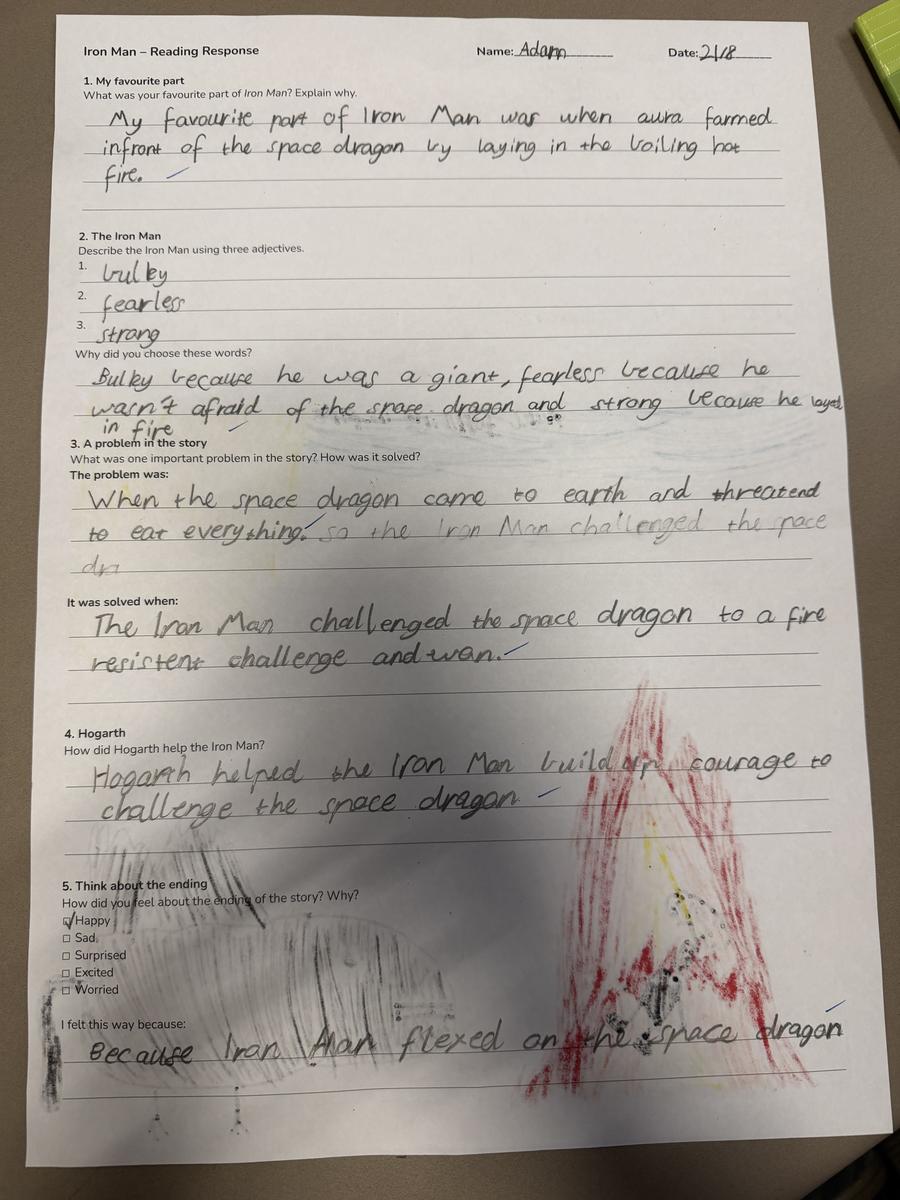 Iron Man – Reading Response
Name: Adam
Date: 21/8
1. My favourite part
What was your favourite part of Iron Man? Explain why.
My favourite part of Iron Man was when aura farmed
infront of the space dragon by laying in the boiling hot
fire.
2. The Iron Man
Describe the Iron Man using three adjectives.
1. bulky
2. fearless
3. strong
Why did you choose these words?
Bulky because he was a giant, fearless because he
wasn't afraid of the space dragon and strong because he layed
in fire
3. A problem in the story
What was one important problem in the story? How was it solved?
The problem was:
When the space dragon came to earth and threatend
to eat everything. so the Iron Man challenged the space
dra
It was solved when:
The Iron Man challenged the space dragon to a fire
resistent challenge and won.
4. Hogarth
How did Hogarth help the Iron Man?
Hogarth helped the Iron Man build up courage to
challenge the space dragon
5. Think about the ending
How did you feel about the ending of the story? Why?
☑ Happy
☐ Sad
☐ Surprised
☐ Excited
☐ Worried
I felt this way because:
Because Iron Man flexed on the space dragon